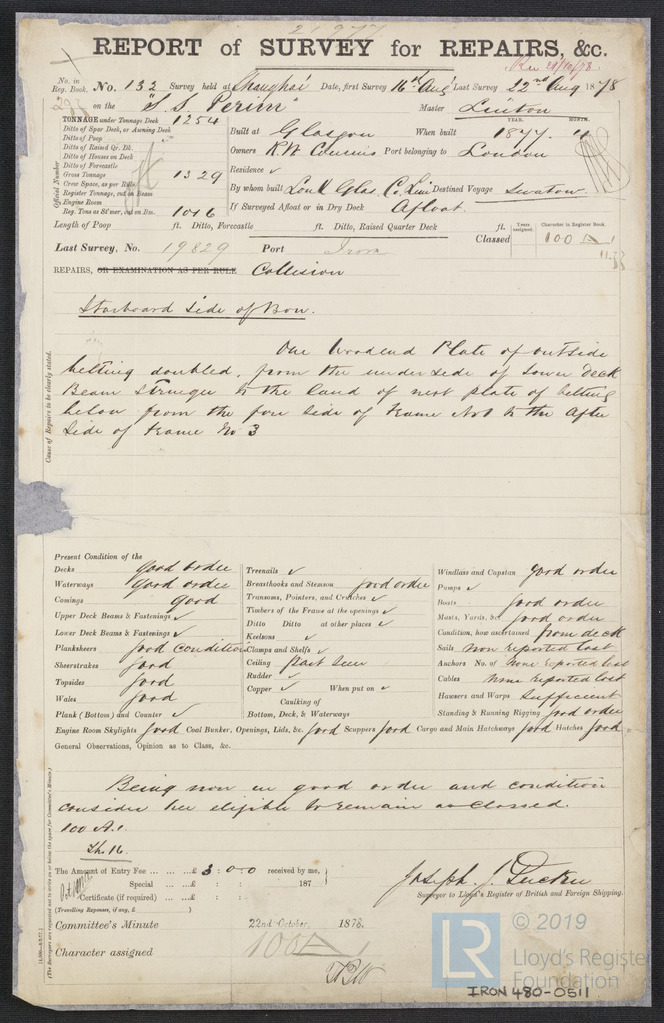 REPORT of SURVEY for REPAIRS, &c.
Rec 21/10/78
No. in Reg. Book No. 132 Survey held at Shanghai Date, first Survey 16th Aug Last Survey 22nd Aug 1878
on the "S. S. Perim" Master Linton
TONNAGE under Tonnage Deck 1254
Ditto of Spar Deck, or Awning Deck
Ditto of Poop
Ditto of Raised Qr. Dk.
Ditto of Houses on Deck
Ditto of Forecastle
Gross Tonnage 1329
Crew Space, as per Rule
Register Tonnage, cut on Beam
Engine Room
Reg. Tons as St'mer, cut on Bm. 1016
Official Number
YEAR. MONTH.
Built at Glasgow When built 1877. 11
Owners R. W. Cousins Port belonging to London
Residence ✓
By whom built Lon & Glas. Co. Lim Destined Voyage Swatow
If Surveyed Afloat or in Dry Dock Afloat.
Length of Poop ft. Ditto, Forecastle ft. Ditto, Raised Quarter Deck ft.
Classed Years assigned. Character in Register Book 100 A 1
Last Survey, No. 19829 Port Iron
REPAIRS, OR EXAMINATION AS PER RULE Collision
Starboard Side of Bow.
One Woodend Plate of outside
belting doubled, from the underside of Lower Deck
Beam Stringer to the land of next plate of belting
below from the fore side of frame No 1 to the After
Side of frame No 3
Cause of Repairs to be clearly stated.
Present Condition of the
Decks good order
Waterways good order
Comings good
Upper Deck Beams & Fastenings ✓
Lower Deck Beams & Fastenings ✓
Planksheers good condition
Sheerstrakes good
Topsides good
Wales good
Plank (Bottom) and Counter ✓
Treenails ✓
Breasthooks and Stemson good order
Transoms, Pointers, and Crutches ✓
Timbers of the Frame at the openings ✓
Ditto Ditto at other places ✓
Keelsons ✓
Clamps and Shelfs ✓
Ceiling part seen
Rudder ✓
Copper ✓ When put on ✓
Caulking of
Bottom, Deck, & Waterways
Windlass and Capstan good order
Pumps ✓
Boats good order
Masts, Yards, &c. good order
Condition, how ascertained from deck
Sails none reported lost
Anchors No. of none reported lost
Cables none reported lost
Hawsers and Warps Sufficient
Standing & Running Rigging good order
Engine Room Skylights good Coal Bunker, Openings, Lids, &c. good Scuppers good Cargo and Main Hatchways good Hatches good
General Observations, Opinion as to Class, &c.
Being now in good order and condition
consider her eligible to remain as Classed.
100 A.1.
Th. 16.
The Amount of Entry Fee ... ... £ 3 : 0 : 0 received by me,
Special ... ... £ : : 187
Certificate (if required) ... £ : :
(Travelling Expenses, if any, £ )
Joseph J. Tucker
Surveyor to Lloyd's Register of British and Foreign Shipping.
Committee's Minute 22nd October, 1878.
Character assigned 100 A 1
(The Surveyors are requested not to write on or below the space for Committee's Minute.)
LR © 2019
Lloyd's Register
Foundation
IRON 480-0511